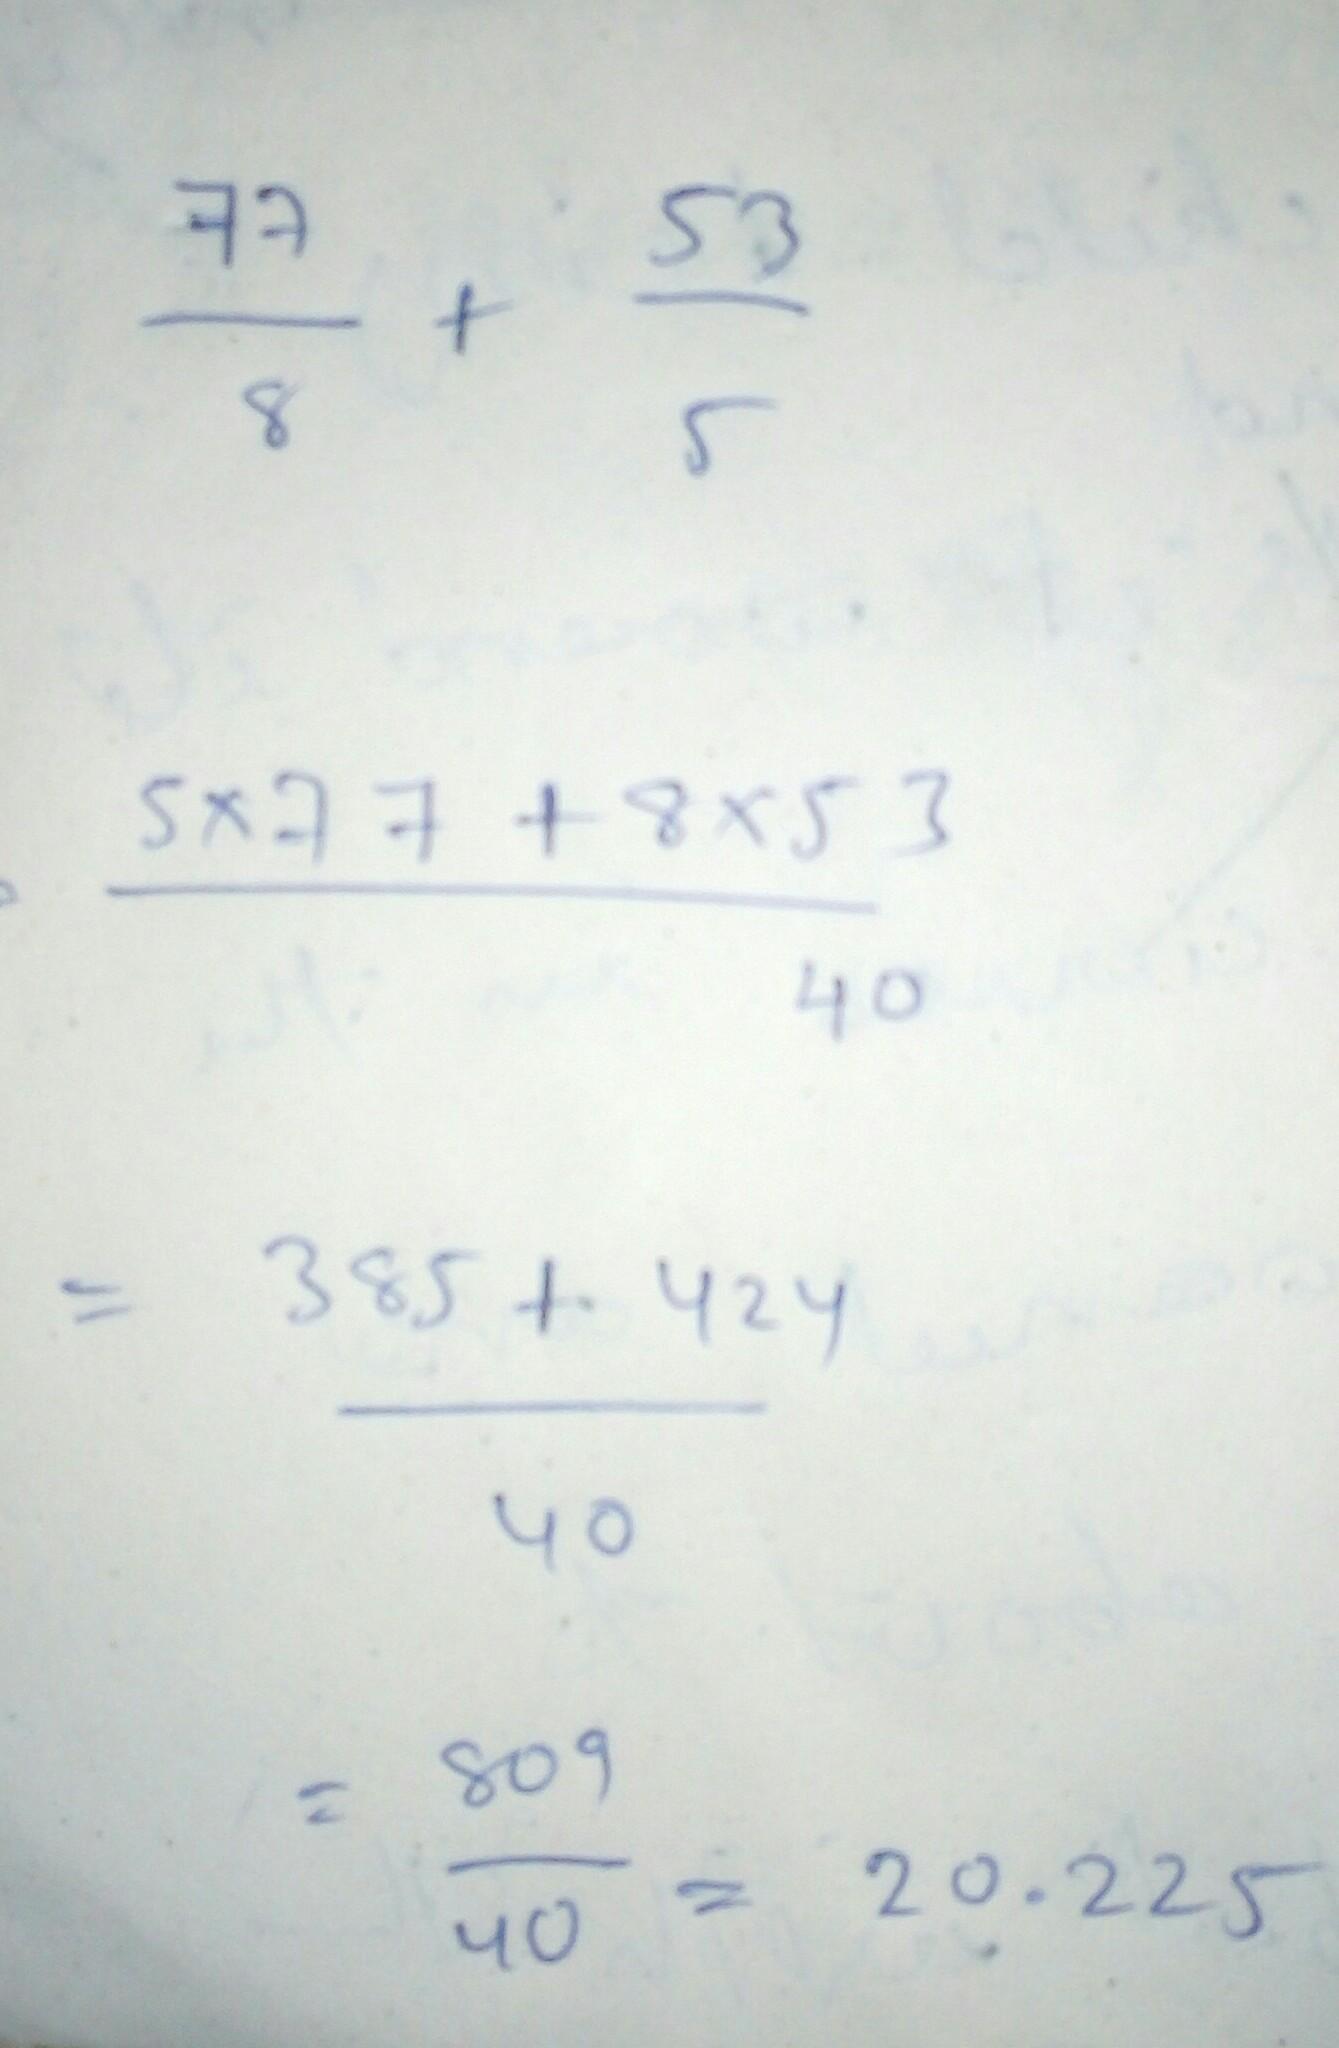 77/8 + 53/5
5×77 + 8×53 / 40
= 385 + 424 / 40
= 809/40 = 20.225